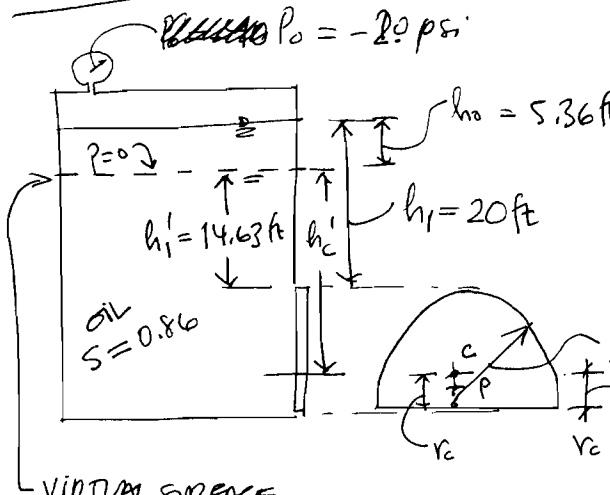 P₀ = -2.0 psi
P=0
h₀ = 5.36 ft
h₁' = 14.63 ft
hc'
h₁ = 20 ft
OIL
S = 0.86
C
P
rc
rc
VIRTUAL SURFACE